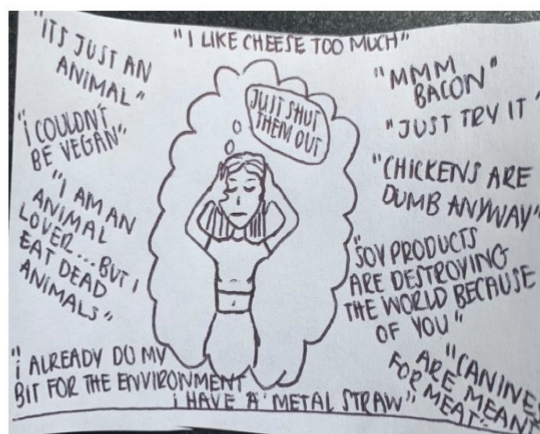 "ITS JUST AN
ANIMAL"
"I LIKE CHEESE TOO MUCH"
"MMM
BACON"
"JUST TRY IT"
JUST SHUT
THEM OUT
"i COULDN'T
BE VEGAN"
"CHICKENS ARE
DUMB ANYWAY"
"I AM AN
ANIMAL
LOVER...BUT I
EAT DEAD
ANIMALS"
"SOY PRODUCTS
ARE DESTROYING
THE WORLD BECAUSE
OF YOU"
"i ALREADY DO MY
BIT FOR THE ENVIRONMENT
i HAVE A METAL STRAW"
"CANINES
ARE MEANT
FOR MEAT"